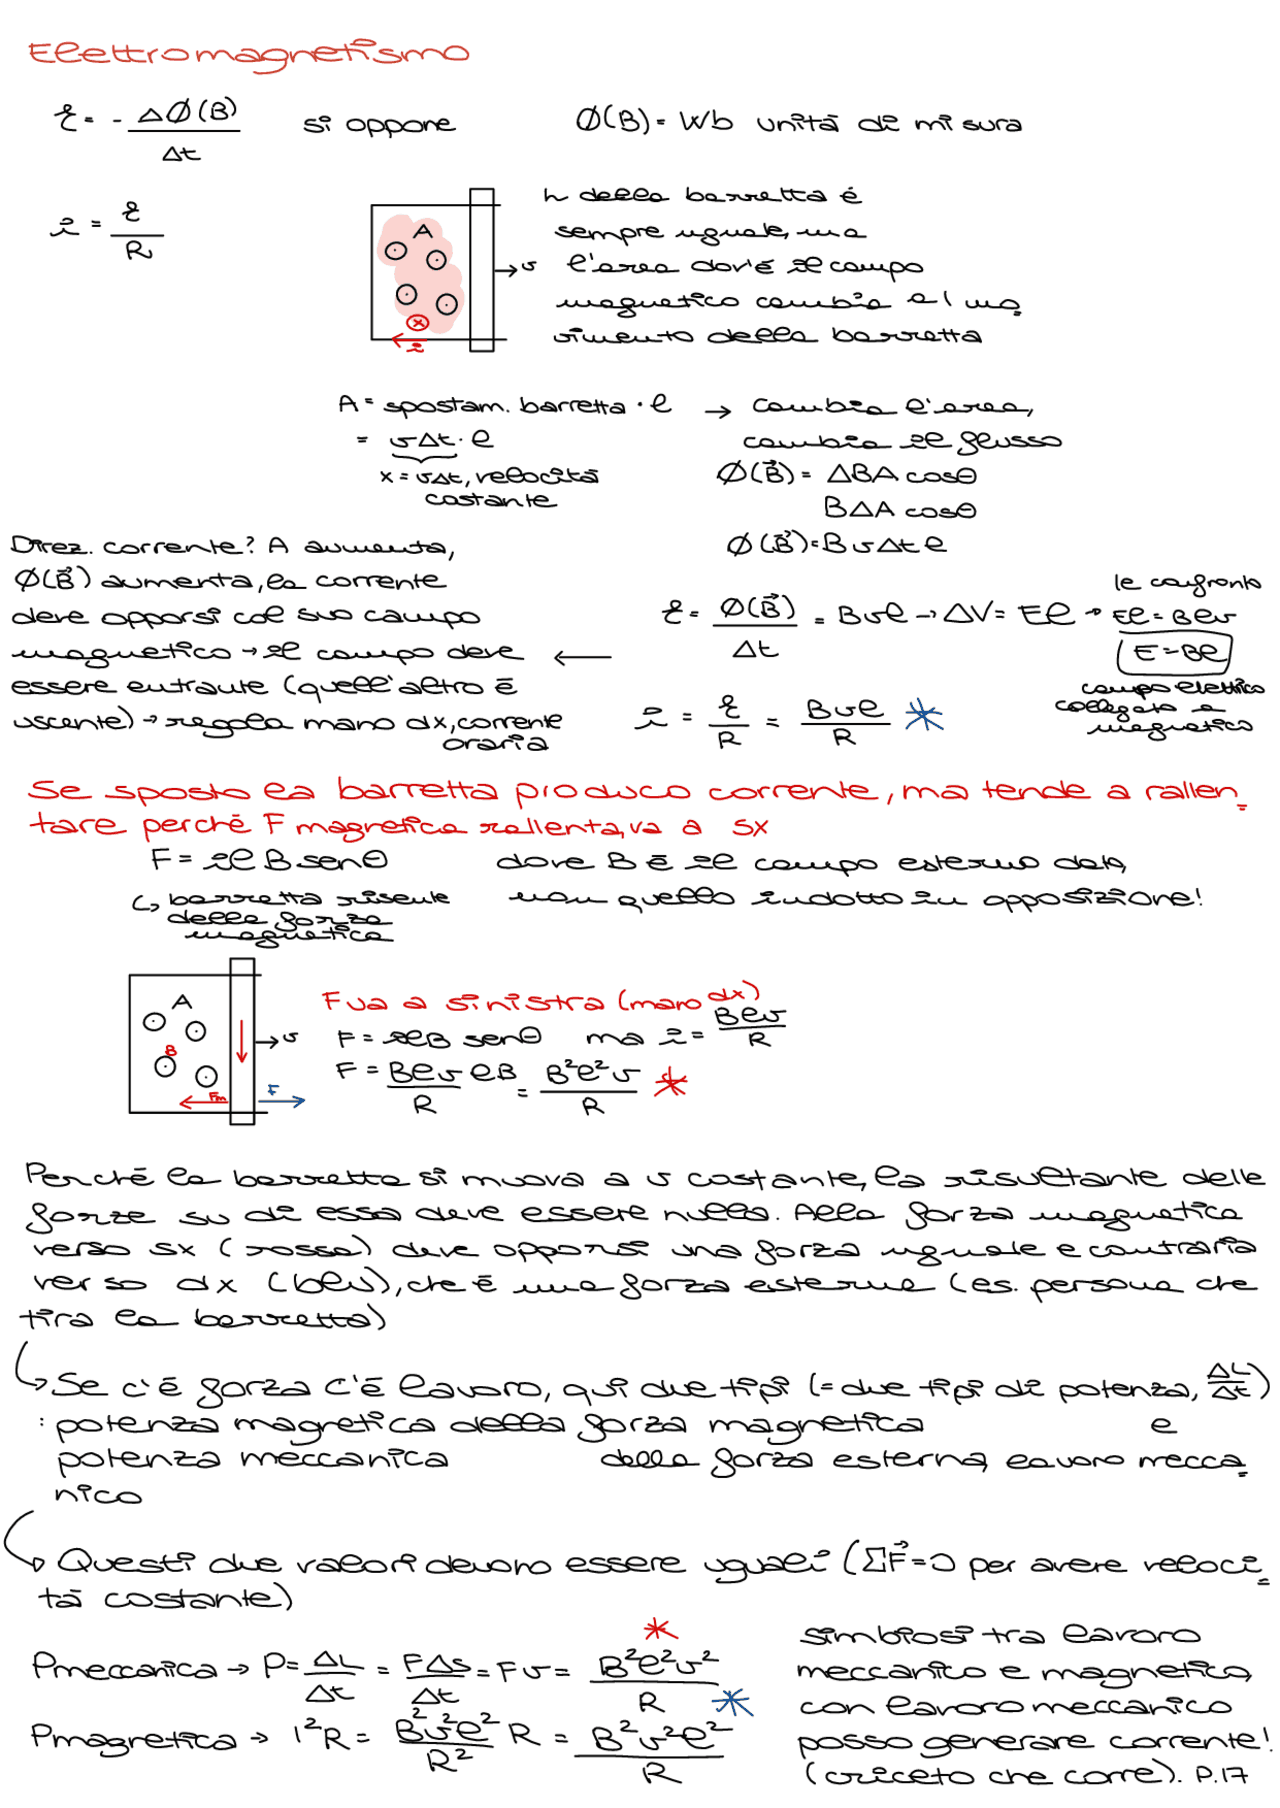 Elettromagnetismo
ε = - ΔØ(B) / Δt si oppone Ø(B) = Wb unità di misura
i = ε / R
h della barretta è
sempre uguale, ma
l'area dov'è il campo
magnetico cambia al mo-
vimento della barretta
A
v
x
i
A = spostam. barretta · l → cambia l'area,
= vΔt · l cambia il flusso
x = vΔt, velocità
costante
Ø(B⃗) = ΔBA cosθ
BΔA cosθ
Ø(B⃗) = BvΔtl
Direz. corrente? A aumenta,
Ø(B⃗) aumenta, la corrente
deve opporsi col suo campo
magnetico → il campo deve ←
essere entrante (quell'altro è
uscente) → regola mano dx, corrente
oraria
le confronto
ε = Ø(B⃗) / Δt = Bvl → ΔV = El → El = Blv
E = Bl
campo elettrico
collegato a
magnetico
i = ε / R = Bvl / R *
Se sposto la barretta produco corrente, ma tende a rallen-
tare perché F magnetica rallenta, va a sx
F = ilB senθ dove B è il campo esterno dato,
↳ barretta risente non quello indotto in opposizione!
della forza
magnetica
A
B
v
Fm
F
F va a sinistra (mano dx)
F = ilB senθ ma i = Blv / R
F = Blv / R lB = B²l²v / R *
Perché la barretta si muova a v costante, la risultante delle
forze su di essa deve essere nulla. Alla forza magnetica
verso sx (rossa) deve opporsi una forza uguale e contraria
verso dx (blu), che è una forza esterna (es. persona che
tira la barretta)
↳ Se c'è forza c'è lavoro, qui due tipi (= due tipi di potenza, ΔL / Δt)
: potenza magnetica della forza magnetica e
potenza meccanica della forza esterna, lavoro mecca-
nico
↳ Questi due valori devono essere uguali (ΣF⃗ = 0 per avere veloci-
tà costante)
Pmeccanica → P = ΔL / Δt = FΔs / Δt = Fv = B²l²v² / R *
Pmagnetica → I²R = B²v²l² / R² R = B²v²l² / R *
simbiosi tra lavoro
meccanico e magnetico,
con lavoro meccanico
posso generare corrente!
(criceto che corre). P.17